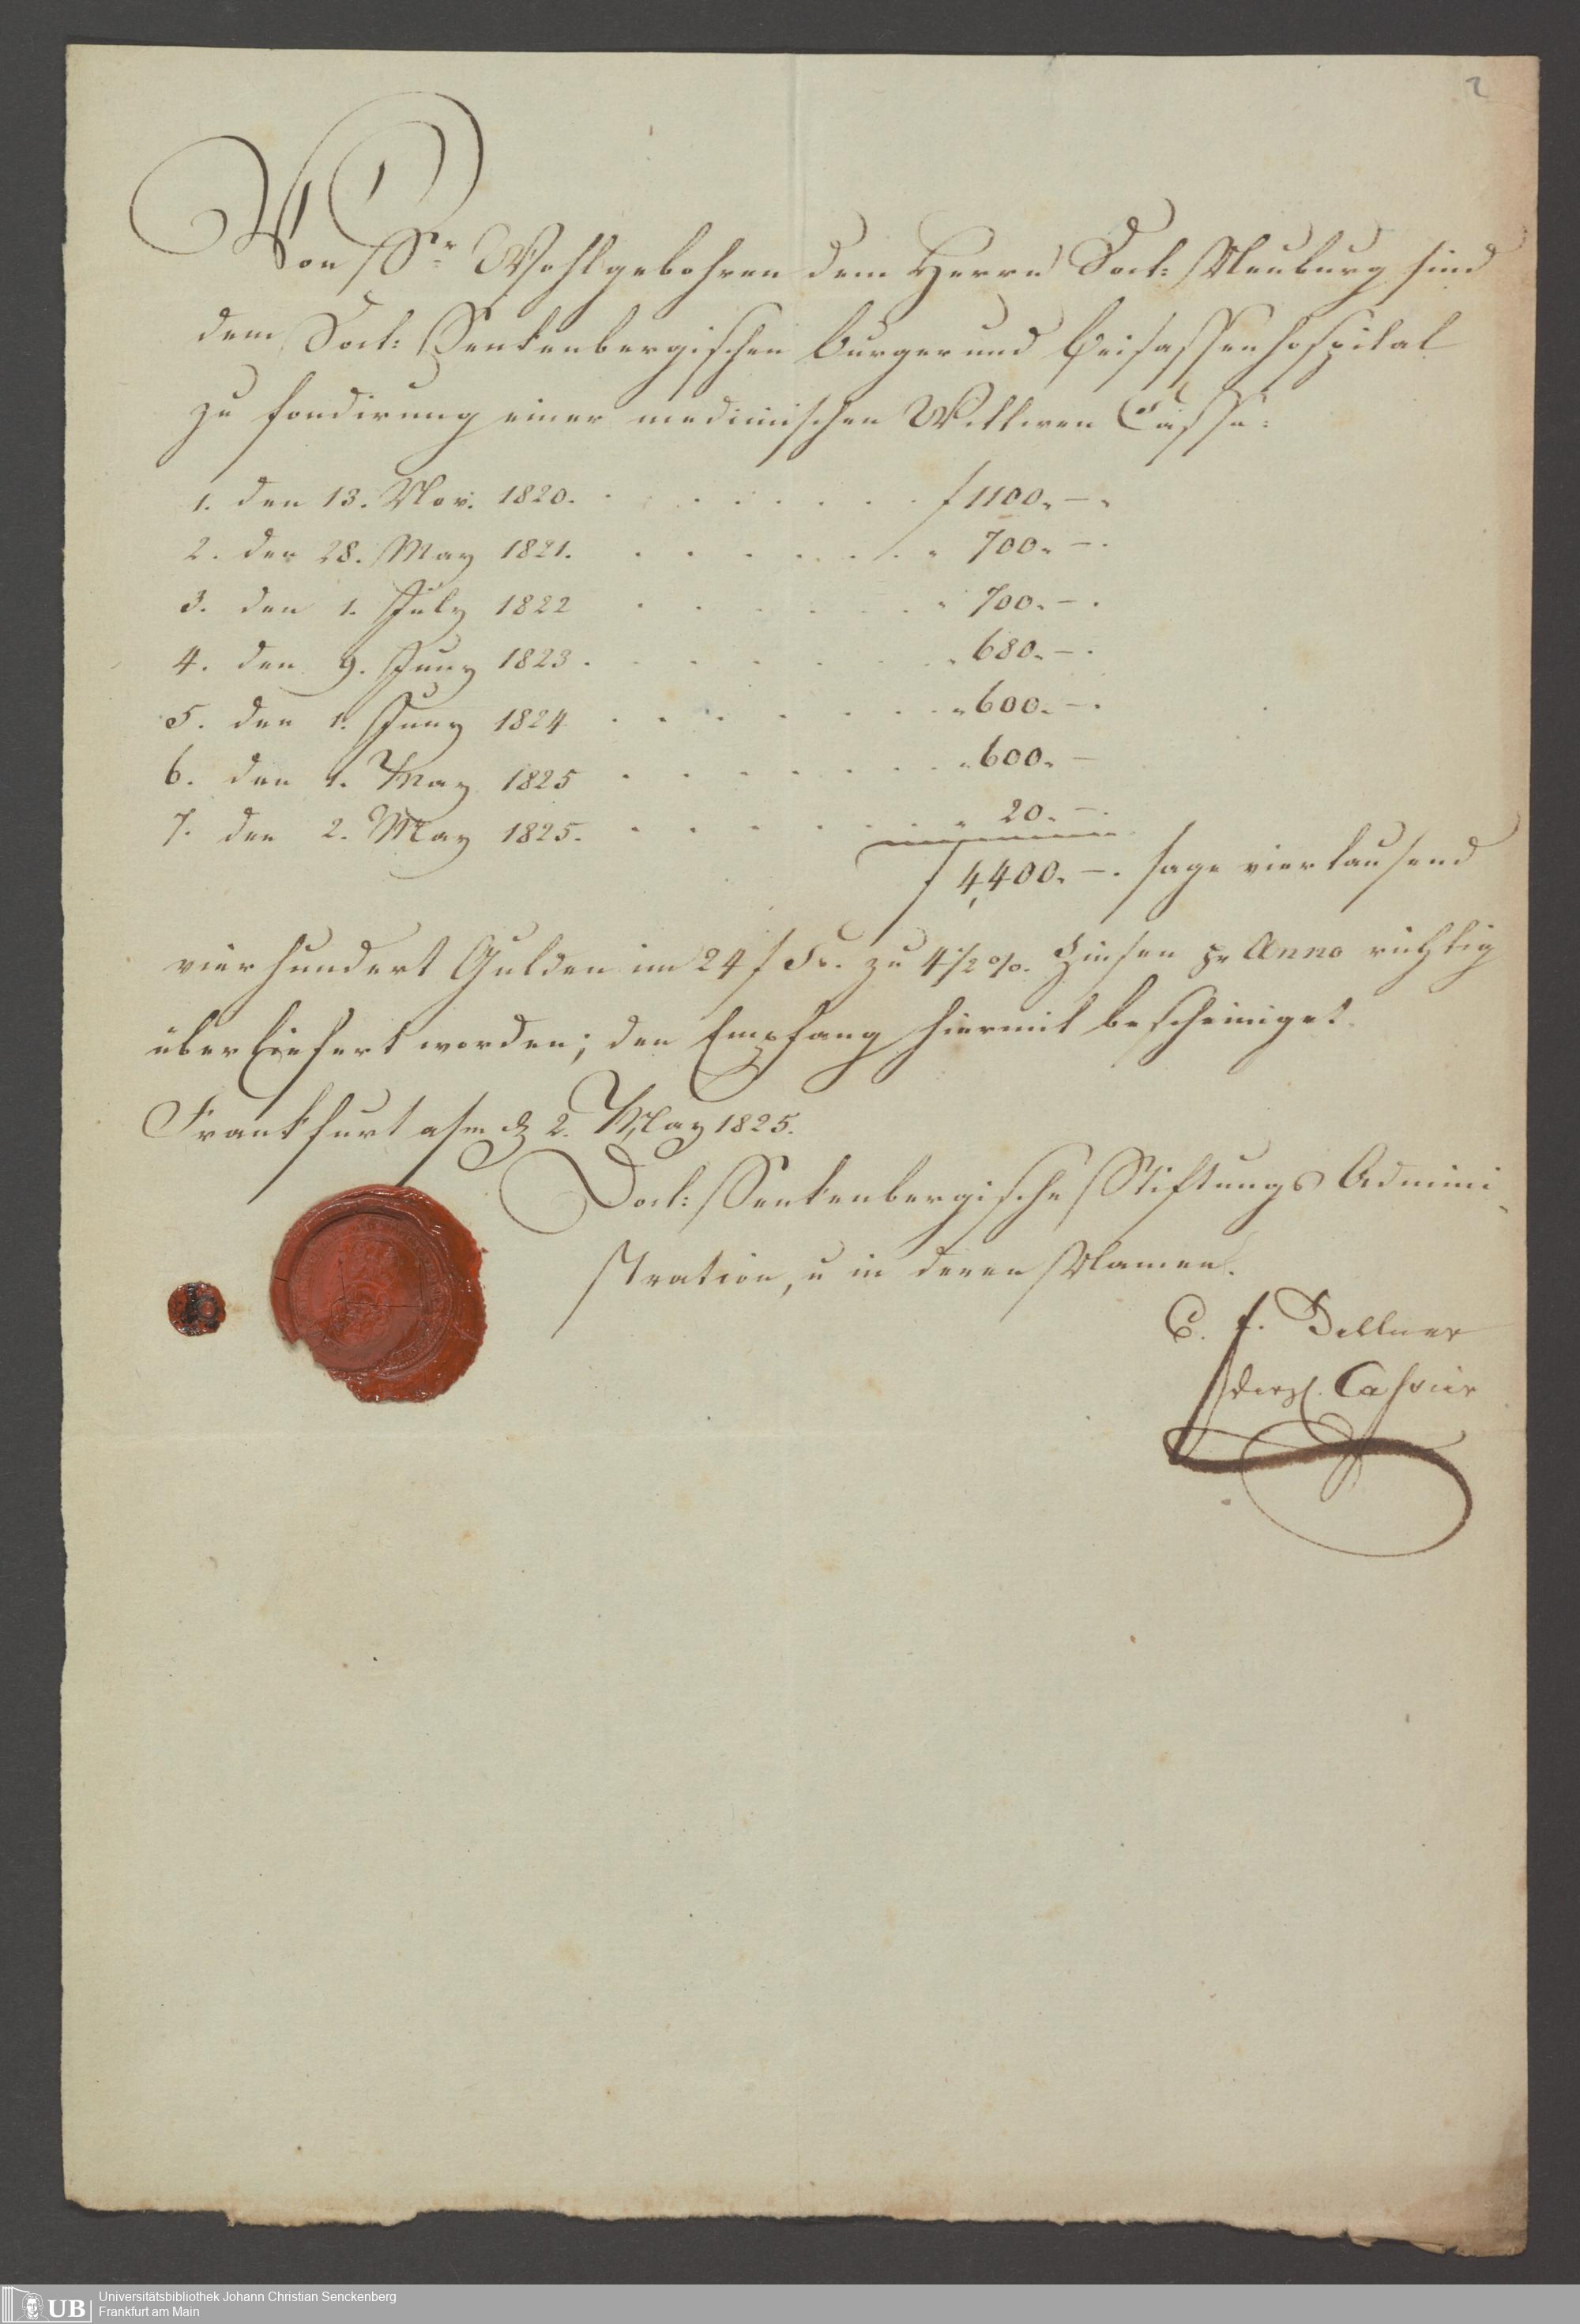 2
Von Sr. Wohlgebohren dem Herrn Doct: Neuburg sind
dem Doct: Senkenbergischen Burger und Beisassenhospital
zu fondirung einer medicinischen Wittwen Casse:
1. den 13. Nov. 1820. . . . . . . . f 1100. – .
2. den 28. May 1821. . . . . . . . „ 700. – .
3. den 1. July 1822 . . . . . . . „ 700. – .
4. den 9. Juny 1823 . . . . . . . „ 680. – .
5. den 1. Juny 1824 . . . . . . . „ 600. – .
6. den 1. May 1825 . . . . . . . „ 600. –
7. den 2. May 1825. . . . . . . „ 20. – .
f 4,400. – . sage vier tausend
vierhundert Gulden im 24 f Fs. zu 4½ %. Zinsen pr Anno richtig
überliefert worden; den Empfang hiermit bescheiniget.
Frankfurt a/m d 2. May 1825.
Doct: Senkenbergische Stiftungs Admini-
stration, u in deren Namen.
C. f. Dellner
derzt. Cassier
UB
Universitätsbibliothek Johann Christian Senckenberg
Frankfurt am Main